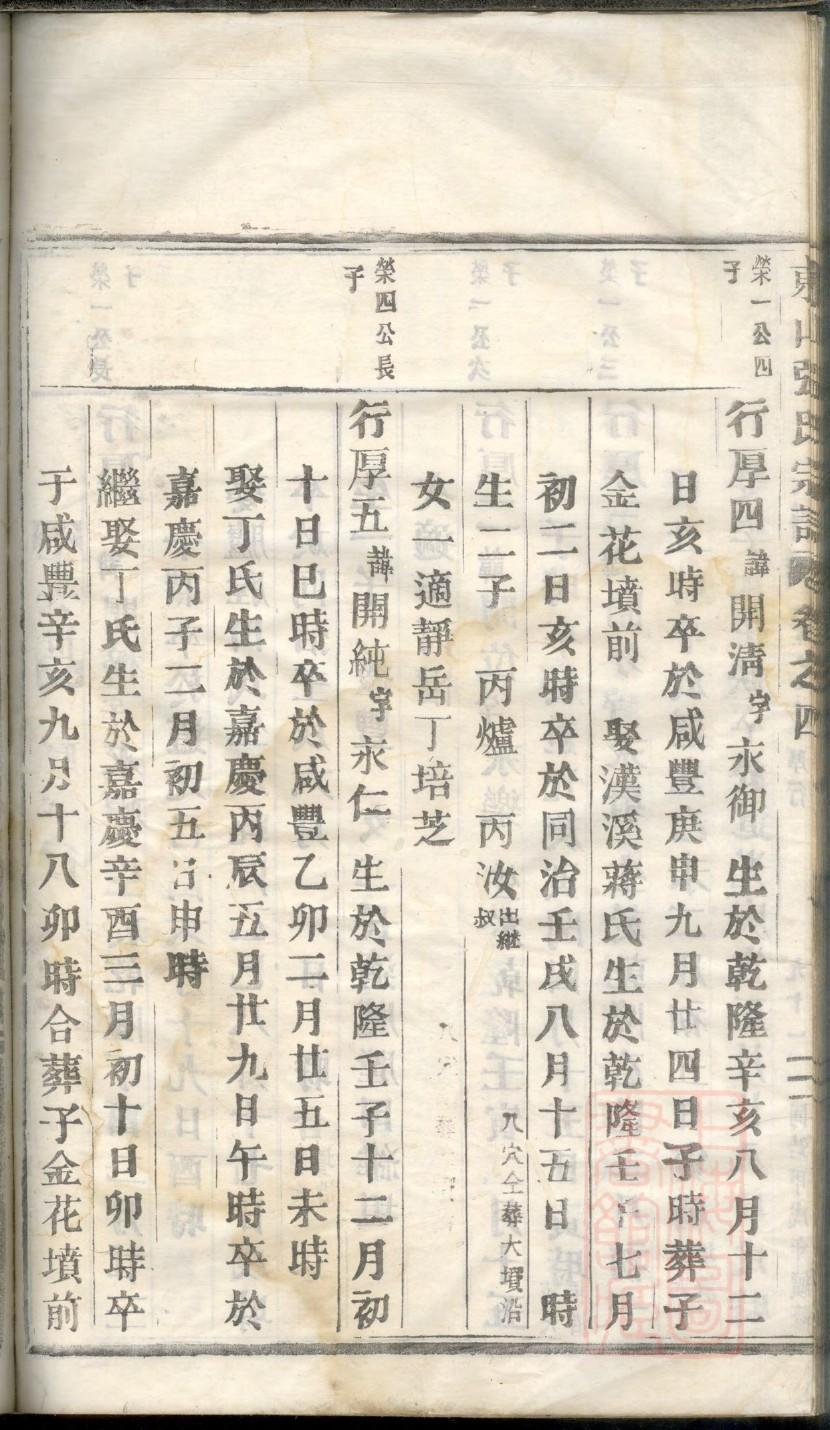 張氏宗譜卷之四
榮一公四
子
行厚四諱開淸字永御生於乾隆辛亥八月十二
日亥時卒於咸豐庚申九月廿四日子時葬子
金花墳前 娶漢溪蔣氏生於乾隆壬 七月
初二日亥時卒於同治壬戌八月十五日 時
八穴仝葬大墳沿
生二子 丙爐 丙汝出繼叔
女一適靜岳丁培芝
榮四公長
子
行厚五諱開純字永仁生於乾隆壬子十二月初
十日巳時卒於咸豐乙卯二月廿五日未時
娶丁氏生於嘉慶丙辰五月廿九日午時卒於
嘉慶丙子二月初五日申時
繼娶丁氏生於嘉慶辛酉三月初十日卯時卒
于咸豐辛亥九月十八卯時合葬子金花墳前